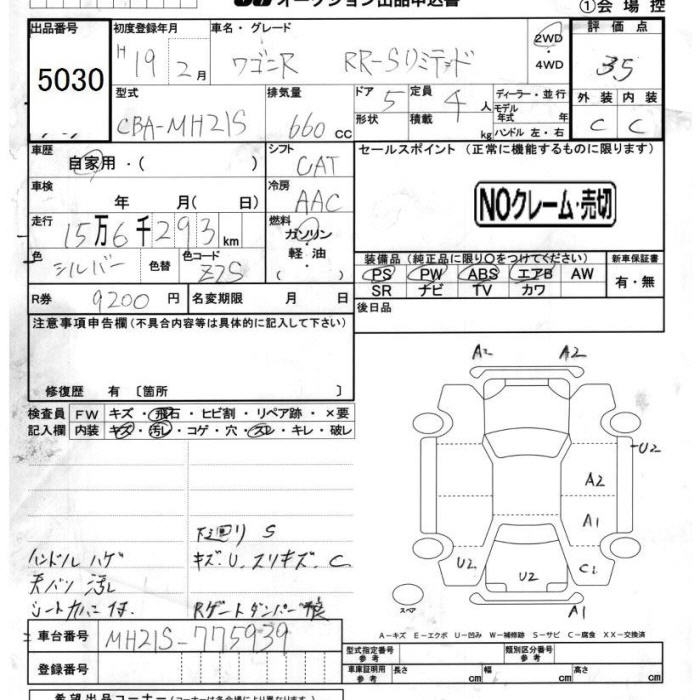 オークション出品申込書
①会場控
出品番号
5030
初度登録年月
H 19年 2月
車名・グレード
ワゴンR RR-Sリミテッド
2WD
・4WD
評価点
3.5
外装 内装
C C
型式
CBA-MH21S
排気量
660 cc
ドア 5
形状
定員 4 人
積載 kg
ディーラー・並行
モデル年式 年
ハンドル 左・右
車歴
自家用・( )
シフト
CAT
車検
年 月( 日)
冷房
AAC
走行
15万6千293km
燃料
ガソリン・
軽油・
( )
色
シルバー 色替
色コード
Z2S
R券 9200円
名変期限 月 日
セールスポイント (正常に機能するものに限ります)
NOクレーム・売切
装備品(純正品に限り○をつけてください)
PS PW ABS エアB AW
SR ナビ TV カワ
新車保証書
有・無
後日品
注意事項申告欄(不具合内容等は具体的に記入して下さい)
修復歴 有 〔箇所 〕
検査員 FW キズ・飛石・ヒビ割・リペア跡・×要
記入欄 内装 キズ・汚レ・コゲ・穴・スレ・キレ・破レ
下廻り S
ハンドル ハゲ
キズ. U. スリキズ. C
天バリ 汚レ
シートカバー付.
Rゲートダンパー不良
A2 A2
U2
A2
A1
U2 U2 C1
スペア
A1
A−キズ E−エクボ U−凹み W−補修跡 S−サビ C−腐食 XX−交換済
車台番号
MH21S-775939
登録番号
型式指定番号
参考
類別区分番号
参考
車庫証明用
参考
長さ cm 幅 cm 高さ cm
希望出品コーナー(コーナーは各会場により異なります)